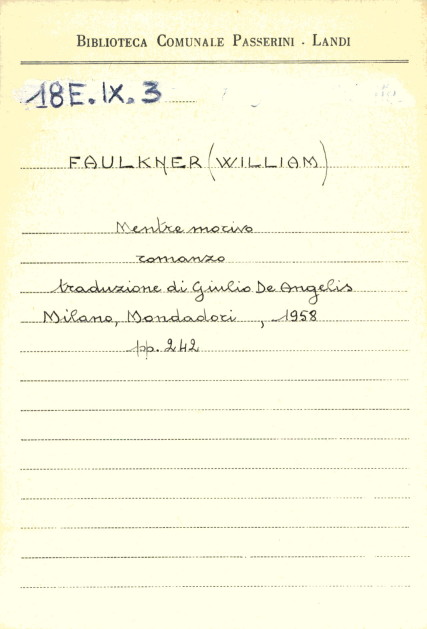 BIBLIOTECA COMUNALE PASSERINI - LANDI
18E.IX.3
FAULKNER (WILLIAM)
Mentre morivo
romanzo
traduzione di Giulio De Angelis
Milano, Mondadori , 1958
pp. 242